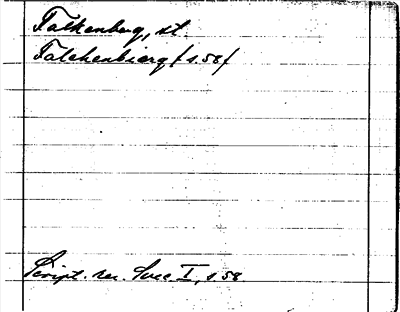 Falkenberg, st.
Falchenbierg (s. 58)
Script. rer. Svec I, s 58.